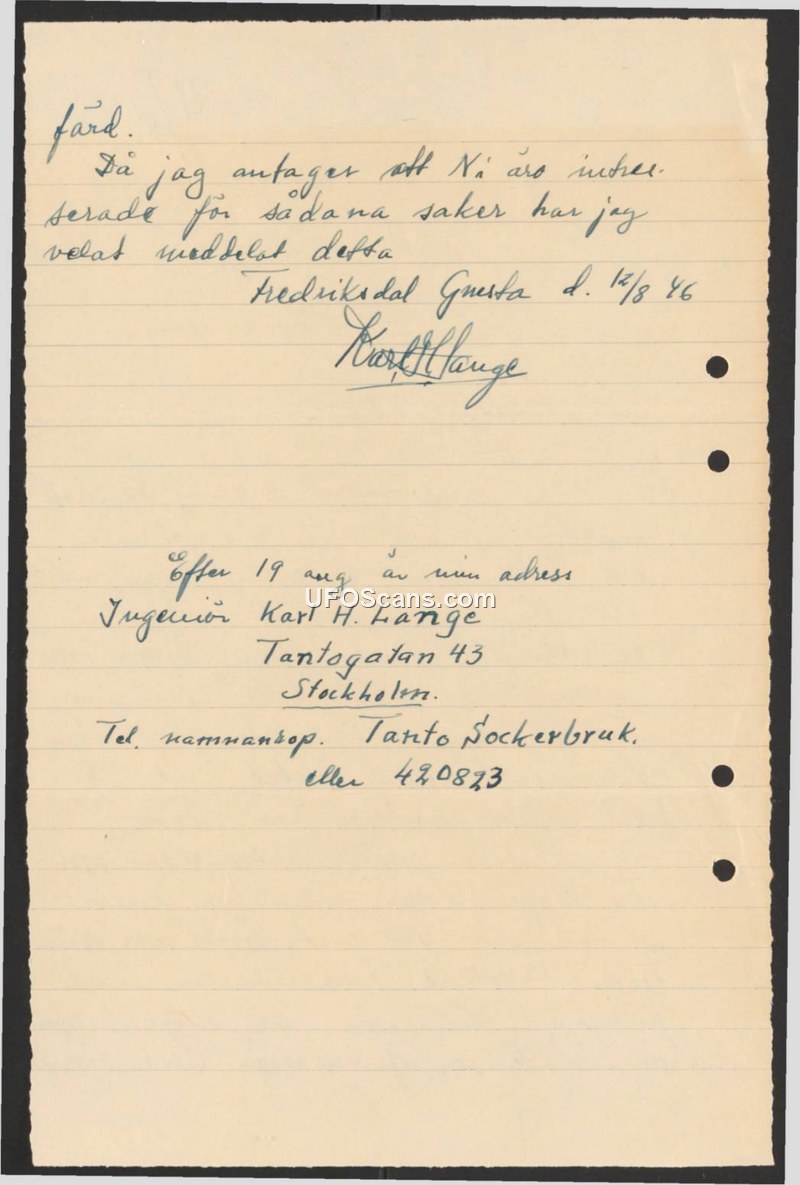 färd.
Då jag antager att Ni äro intres-
serade för sådana saker har jag
velat meddelat detta
Fredriksdal Gnesta d. 12/8 46
Karl H Lange
Efter 19 aug är min adress
UFOScans.com
Ingeniör Karl H. Lange
Tantogatan 43
Stockholm.
Tel. namnanrop. Tanto Sockerbruk.
eller 420823